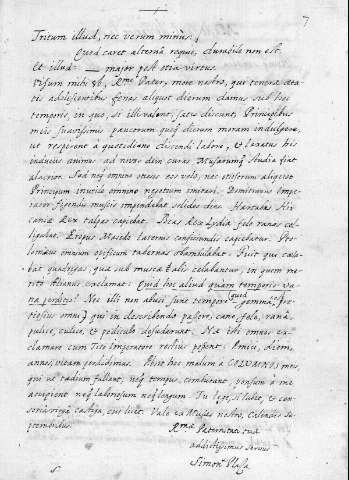 7
Tritum illud, nec verum minus:
Quod caret alterna requie, durabile non est.
Et illud: major post otia virtus.
Visum mihi est, Rme Pater, more nostro, qui teneræ æta
tis adolescentibus ferias aliquot dierum damus sub hoc
temporis, in quo, si illi volent, satis discunt, Principibus
meis suavissimis paucorum quoq dierum moram indulgere,
ut respirent a quotidiano discendi labore, & laxatus his
induciis animus ad nova dein curæ Musarumq studia fiat
alacrior. Sed neq omnino otiosos eos volo, nec otiosorum aliquot
Principum inutile omnino negotium imitari. Domitianus Impe
rator figendis muscis impendebat solidos dies. Hartadus Hir
caniæ Rex talpas capiebat. Bias Rex Lydiæ solo ranas
Eropus Macedo laternis conficiendis capiebatur. Pto
lomæus omnium opificum tabernas obambulabat. Fuit qui cæla
bat quadrigas, quæ sub muscæ alis celabantur, in quem
rito Ælianus exclamat: Quid hoc aliud quam temporis
perditio? Nec illi non abusi sunt tempore, quid gemma
qui in describendo passere, cane, fele, rana,
pulice, culice, & pediculo desuderunt. Næ ibi omnes ex
clamare cum Tito Imperatore rectius possent: Amici, diem,
annos, vitam perdidimus. Absit hoc malum a COLVMNIS meis,
qui ut tædium fallant, neq tempus conterant, pensum a me
accipient neq laboriosum neq longum. Tu lege, si lubet, &
castiga, cui licet. Vale ex Musæo nostro, Calendis Se
ptembribus.
Rmæ Paternitati tuæ
addictissimus servus
Simon Plaza